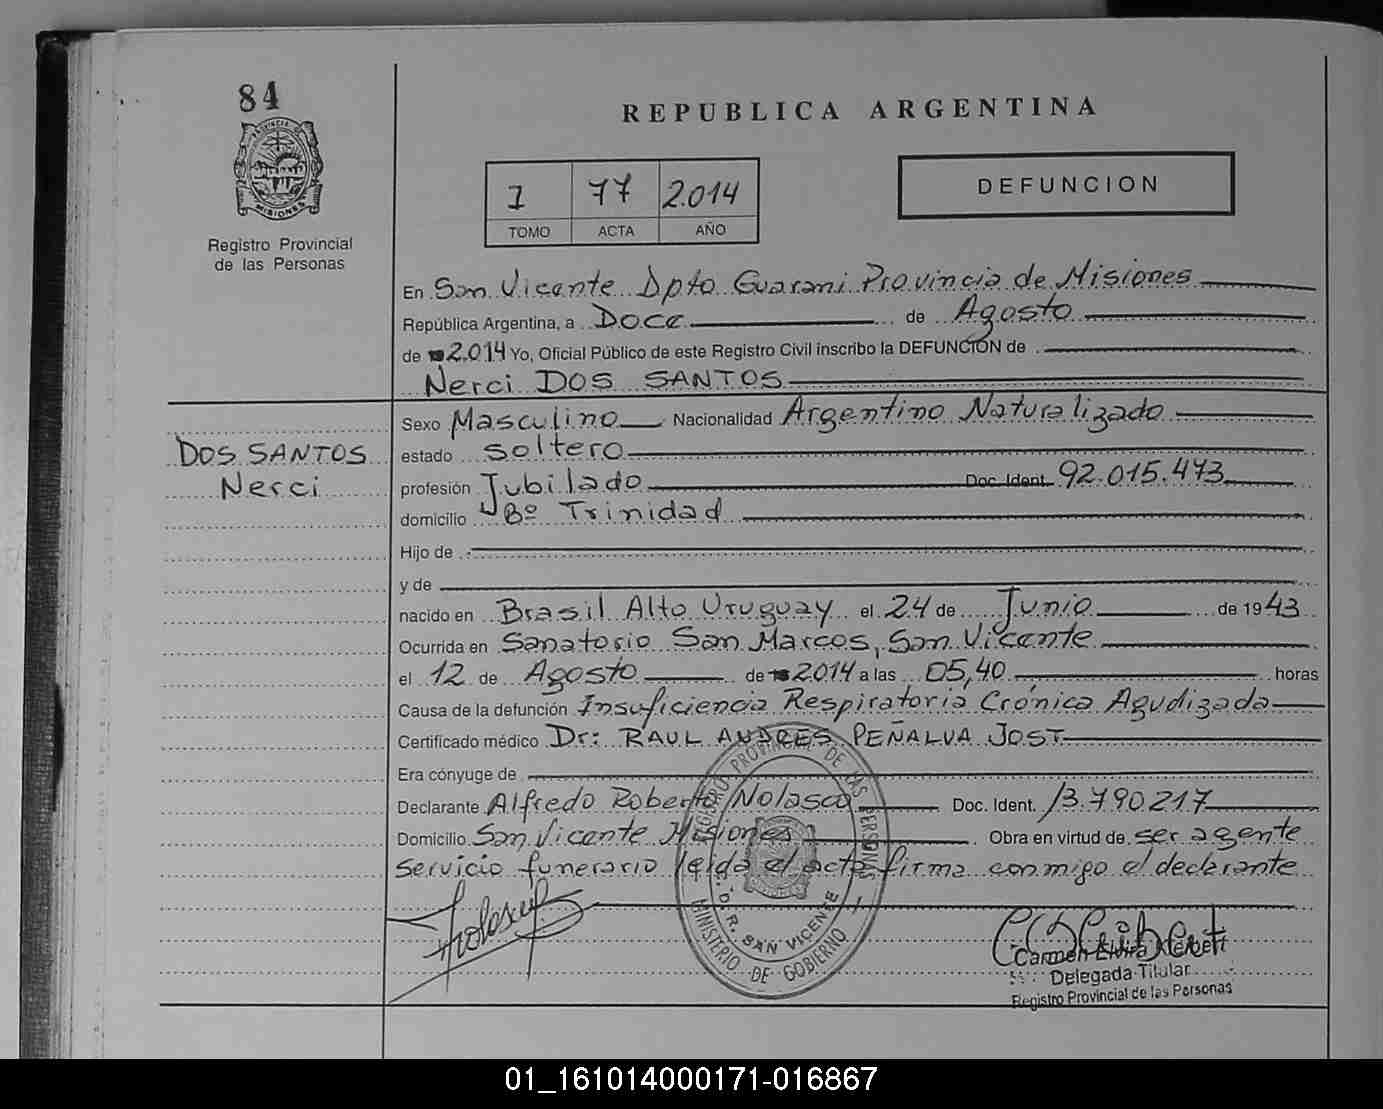 84
PROVINCIA DE
MISIONES
Registro Provincial
de las Personas
REPUBLICA ARGENTINA
1 77 2.014
TOMO ACTA AÑO
DEFUNCION
En San Vicente Dpto Guarani Provincia de Misiones
República Argentina, a Doce de Agosto
de 2.014 Yo, Oficial Público de este Registro Civil inscribo la DEFUNCION de
Nerci DOS SANTOS
DOS SANTOS
Nerci
Sexo Masculino Nacionalidad Argentino Naturalizado
estado soltero
profesión Jubilado Doc. Ident. 92.015.473
domicilio Bº Trinidad
Hijo de
y de
nacido en Brasil Alto Uruguay el 24 de Junio de 1943
Ocurrida en Sanatorio San Marcos, San Vicente
el 12 de Agosto de 2014 a las 05,40 horas
Causa de la defunción Insuficiencia Respiratoria Crónica Agudizada
Certificado médico Dr: RAUL ANDRES PEÑALVA JOST
Era cónyuge de
Declarante Alfredo Roberto Nolasco Doc. Ident. 13.790.217
Domicilio San Vicente Misiones Obra en virtud de ser agente
servicio funerario leida el acta firma conmigo el declarante
REGISTRO PROVINCIAL DE LAS PERSONAS
D. R. SAN VICENTE
MINISTERIO DE GOBIERNO
Carmen Elvira Kleibert
Delegada Titular
Registro Provincial de las Personas
01_161014000171-016867